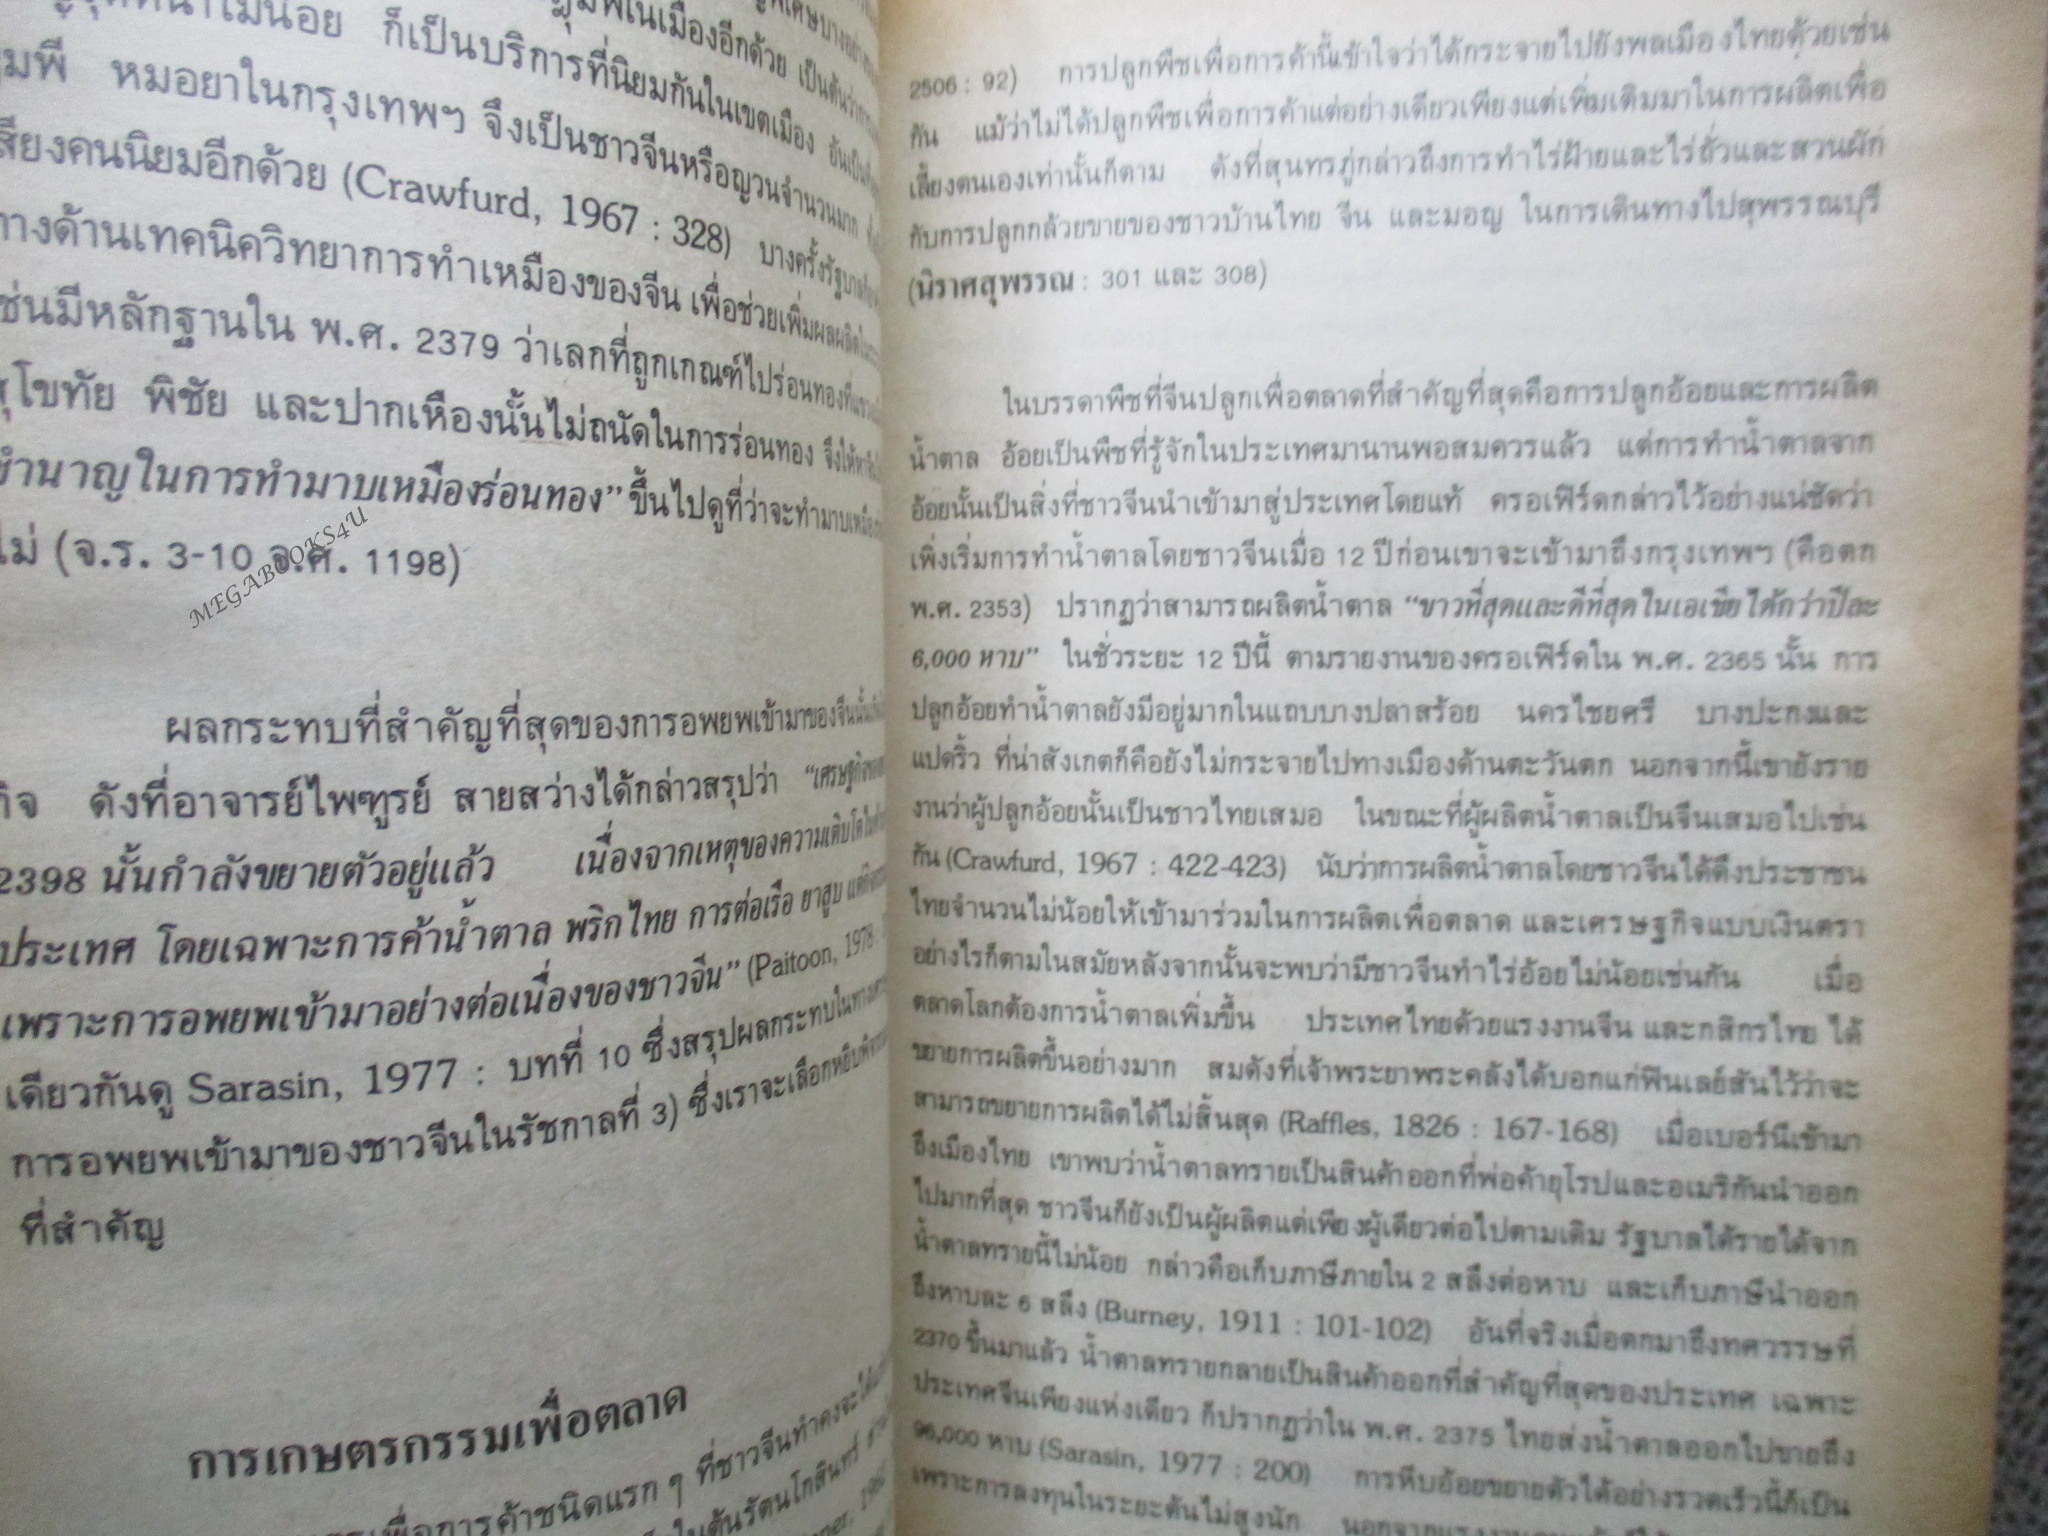 ก็เป็นบริการที่นิยมกันในเขตเมือง
หมอยาในกรุงเทพฯ จึงเป็นชาวจีนหรือญวนจำนวนมาก
เสียงคนนิยมอีกด้วย (Crawfurd, 1967 : 328) บางครั้งรัฐบาล
ทางด้านเทคนิควิทยาการทำเหมืองของจีน เพื่อช่วยเพิ่มผลผลิต
เช่นมีหลักฐานใน พ.ศ. 2379 ว่าเลกที่ถูกเกณฑ์ไปร่อนทองที่
สุโขทัย พิชัย และปากเหืองนั้นไม่ถนัดในการร่อนทอง จึงให้
ชำนาญในการทำมาบเหมืองร่อนทอง” ขึ้นไปดูที่ว่าจะทำมาบเหมือง
ไม่ (จ.ร. 3-10 จ.ศ. 1198)
MEGABOOKS4U
ผลกระทบที่สำคัญที่สุดของการอพยพเข้ามาของจีนนั้น
กิจ ดังที่อาจารย์ไพฑูรย์ สายสว่างได้กล่าวสรุปว่า “เศรษฐกิจ
2398 นั้นกำลังขยายตัวอยู่แล้ว เนื่องจากเหตุของความเติบโต
ประเทศ โดยเฉพาะการค้าน้ำตาล พริกไทย การต่อเรือ ยาสูบ
เพราะการอพยพเข้ามาอย่างต่อเนื่องของชาวจีน” (Paitoon, 1978
เดียวกันดู Sarasin, 1977 : บทที่ 10 ซึ่งสรุปผลกระทบในทาง
การอพยพเข้ามาของชาวจีนในรัชกาลที่ 3) ซึ่งเราจะเลือกหยิบ
ที่สำคัญ
การเกษตรกรรมเพื่อตลาด
เพื่อการค้าชนิดแรก ๆ ที่ชาวจีนทำคงจะ
2506 : 92) การปลูกพืชเพื่อการค้านี้เข้าใจว่าได้กระจายไปยังพลเมืองไทยด้วยเช่น
กัน แม้ว่าไม่ได้ปลูกพืชเพื่อการค้าแต่อย่างเดียวเพียงแต่เพิ่มเติมมาในการผลิตเพื่อ
เลี้ยงตนเองเท่านั้นก็ตาม ดังที่สุนทรภู่กล่าวถึงการทำไร่ฝ้ายและไร่ถั่วและสวนผัก
กับการปลูกกล้วยขายของชาวบ้านไทย จีน และมอญ ในการเดินทางไปสุพรรณบุรี
(นิราศสุพรรณ : 301 และ 308)
ในบรรดาพืชที่จีนปลูกเพื่อตลาดที่สำคัญที่สุดคือการปลูกอ้อยและการผลิต
น้ำตาล อ้อยเป็นพืชที่รู้จักในประเทศมานานพอสมควรแล้ว แต่การทำน้ำตาลจาก
อ้อยนั้นเป็นสิ่งที่ชาวจีนนำเข้ามาสู่ประเทศโดยแท้ ครอเฟิร์ดกล่าวไว้อย่างแน่ชัดว่า
เพิ่งเริ่มการทำน้ำตาลโดยชาวจีนเมื่อ 12 ปีก่อนเขาจะเข้ามาถึงกรุงเทพฯ (คือตก
พ.ศ. 2353) ปรากฏว่าสามารถผลิตน้ำตาล “ขาวที่สุดและดีที่สุดในเอเชียได้กว่าปีละ
6,000 หาบ” ในชั่วระยะ 12 ปีนี้ ตามรายงานของครอเฟิร์ดใน พ.ศ. 2365 นั้น การ
ปลูกอ้อยทำน้ำตาลยังมีอยู่มากในแถบบางปลาสร้อย นครไชยศรี บางปะกงและ
แปดริ้ว ที่น่าสังเกตก็คือยังไม่กระจายไปทางเมืองด้านตะวันตก นอกจากนี้เขายังราย
งานว่าผู้ปลูกอ้อยนั้นเป็นชาวไทยเสมอ ในขณะที่ผู้ผลิตน้ำตาลเป็นจีนเสมอไปเช่น
กัน (Crawfurd, 1967 : 422-423) นับว่าการผลิตน้ำตาลโดยชาวจีนได้ดึงประชาชน
ไทยจำนวนไม่น้อยให้เข้ามาร่วมในการผลิตเพื่อตลาด และเศรษฐกิจแบบเงินตรา
อย่างไรก็ตามในสมัยหลังจากนั้นจะพบว่ามีชาวจีนทำไร่อ้อยไม่น้อยเช่นกัน เมื่อ
ตลาดโลกต้องการน้ำตาลเพิ่มขึ้น ประเทศไทยด้วยแรงงานจีน และกสิกรไทย ได้
ขยายการผลิตขึ้นอย่างมาก สมดังที่เจ้าพระยาพระคลังได้บอกแก่ฟินเลย์สันไว้ว่าจะ
สามารถขยายการผลิตได้ไม่สิ้นสุด (Raffles, 1826 : 167-168) เมื่อเบอร์นีเข้ามา
ถึงเมืองไทย เขาพบว่าน้ำตาลทรายเป็นสินค้าออกที่พ่อค้ายุโรปและอเมริกันนำออก
ไปมากที่สุด ชาวจีนก็ยังเป็นผู้ผลิตแต่เพียงผู้เดียวต่อไปตามเดิม รัฐบาลได้รายได้จาก
น้ำตาลทรายนี้ไม่น้อย กล่าวคือเก็บภาษีภายใน 2 สลึงต่อหาบ และเก็บภาษีนำออก
ถึงหาบละ 6 สลึง (Burney, 1911 : 101-102) อันที่จริงเมื่อตกมาถึงทศวรรษที่
2370 ขึ้นมาแล้ว น้ำตาลทรายกลายเป็นสินค้าออกที่สำคัญที่สุดของประเทศ เฉพาะ
ประเทศจีนเพียงแห่งเดียว ก็ปรากฏว่าใน พ.ศ. 2375 ไทยส่งน้ำตาลออกไปขายถึง
96,000 หาบ (Sarasin, 1977 : 200) การหีบอ้อยขยายตัวได้อย่างรวดเร็วนี้ก็เป็น
เพราะการลงทุนในระยะต้นไม่สูงนัก